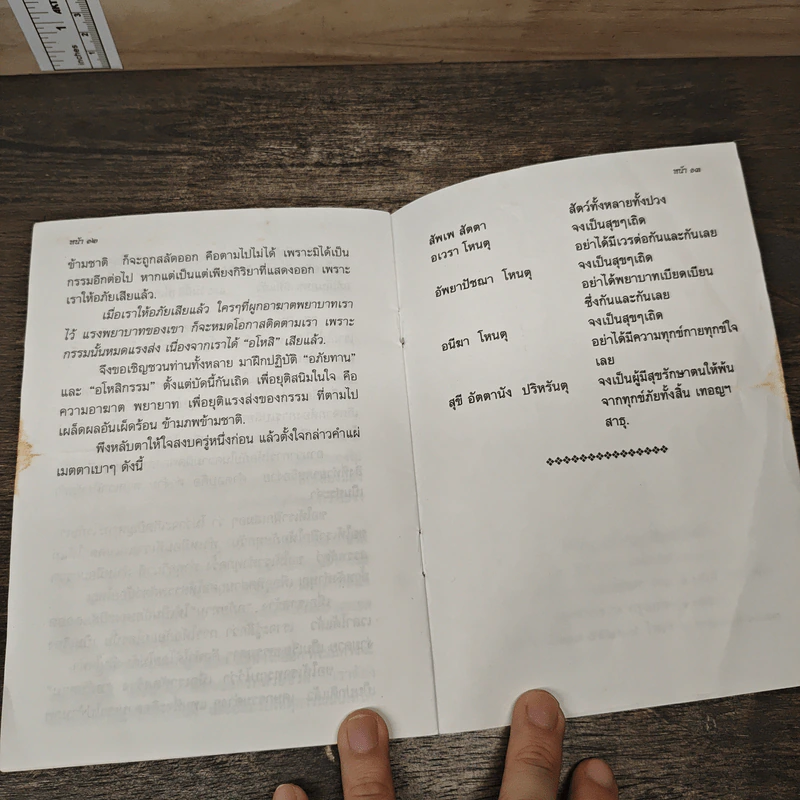 หน้า ๑๒
ข้ามชาติ ก็จะถูกสลัดออก คือตามไปไม่ได้ เพราะมิได้เป็น
กรรมอีกต่อไป หากแต่เป็นแต่เพียงกิริยาที่แสดงออก เพราะ
เราให้อภัยเสียแล้ว.
เมื่อเราให้อภัยเสียแล้ว ใครๆที่ผูกอาฆาตพยาบาทเรา
ไว้ แรงพยาบาทของเขา ก็จะหมดโอกาสติดตามเรา เพราะ
กรรมนั้นหมดแรงส่ง เนื่องจากเราได้ “อโหสิ” เสียแล้ว.
จึงขอเชิญชวนท่านทั้งหลาย มาฝึกปฏิบัติ “อภัยทาน”
และ “อโหสิกรรม” ตั้งแต่บัดนี้กันเถิด เพื่อยุติสนิมในใจ คือ
ความอาฆาต พยาบาท เพื่อยุติแรงส่งของกรรม ที่ตามไป
เผล็ดผลอันเผ็ดร้อน ข้ามภพข้ามชาติ.
พึงหลับตาให้ใจสงบครู่หนึ่งก่อน แล้วตั้งใจกล่าวคำแผ่
เมตตาเบาๆ ดังนี้
หน้า ๑๓
สัพเพ สัตตา สัตว์ทั้งหลายทั้งปวง
อเวรา โหนตุ จงเป็นสุขๆเถิด
อย่าได้มีเวรต่อกันและกันเลย
อัพยาปัชฌา โหนตุ จงเป็นสุขๆเถิด
อย่าได้พยาบาทเบียดเบียน
ซึ่งกันและกันเลย
อนีฆา โหนตุ จงเป็นสุขๆเถิด
อย่าได้มีความทุกข์กายทุกข์ใจ
เลย
สุขี อัตตานัง ปริหรันตุ จงเป็นผู้มีสุขรักษาตนให้พ้น
จากทุกข์ภัยทั้งสิ้น เทอญฯ
สาธุ.